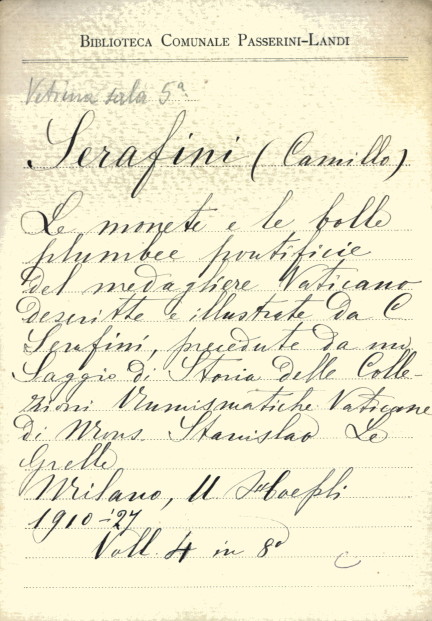 BIBLIOTECA COMUNALE PASSERINI-LANDI
Vetrina sala 5ª
Serafini (Camillo)
Le monete e le bolle
plumbee pontificie
del medagliere Vaticano
descritte e illustrate da C
Serafini, precedute da un
Saggio di Storia delle Colle-
zioni Numismatiche Vaticane
di Mons. Stanislao Le
Grelle
Milano, U Hoepli
1910-27
Voll. 4 in 8º